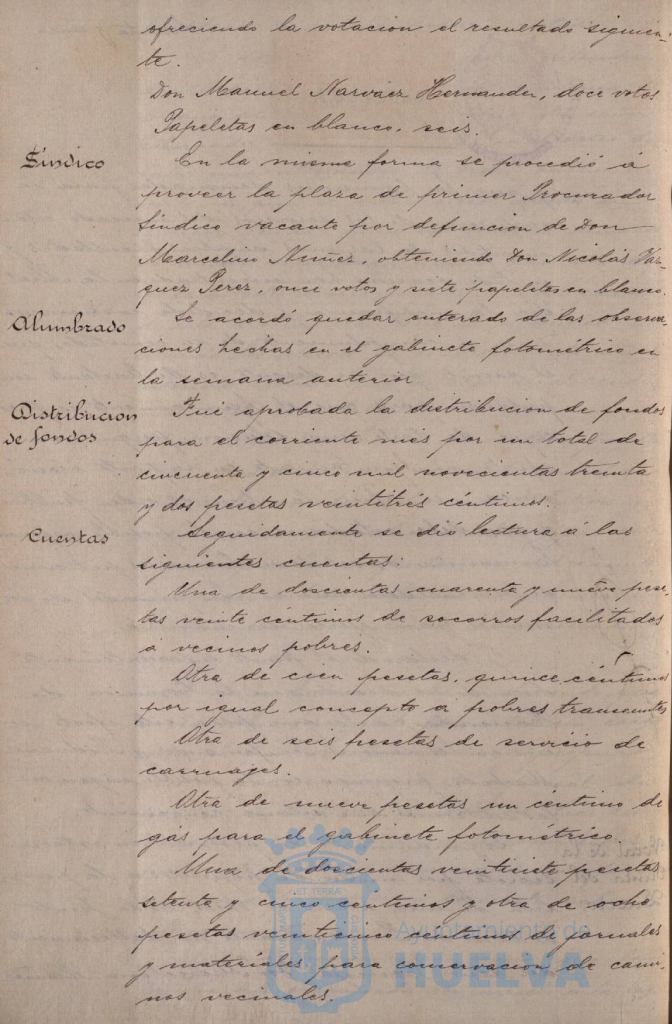 ofreciendo la votacion el resultado siguien-
te.
Don Manuel Narvaez Hernandez, doce votos
Papeletas en blanco, seis.
Síndico
En la misma forma se procedió á
proveer la plaza de primer Procurador
Síndico vacante por defuncion de Don
Marcelino Nuñez, obteniendo Don Nicolás Vaz-
quez Perez, once votos y siete papeletas en blanco.
Alumbrado
Se acordó quedar enterado de las observa-
ciones hechas en el gabinete fotométrico en
la semana anterior
Distribucion
de fondos
Fué aprobada la distribucion de fondos
para el corriente mes por un total de
cincuenta y cinco mil novecientas treinta
y dos pesetas veintitrés céntimos.
Cuentas
Seguidamente se dió lectura á las
siguientes cuentas:
Una de doscientas cuarenta y nueve pese-
tas veinte céntimos de socorros facilitados
á vecinos pobres.
Otra de cien pesetas, quince céntimos
por igual concepto a pobres transeuntes
Otra de seis pesetas de servicio de
carruages.
Otra de nueve pesetas un céntimo de
gás para el gabinete fotométrico.
Una de doscientas veintisiete pesetas
setenta y cinco centimos y otra de ocho
pesetas veinticinco centimos de jornales
y materiales para conservacion de cami-
nos vecinales.
Ayuntamiento de
HUELVA